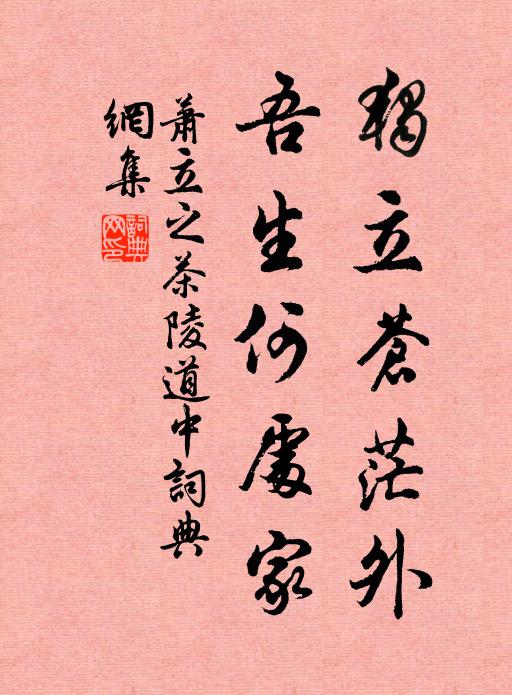 獨立蒼茫外
吾生何處家
蕭立之茶陵道中詞典
網集
詞典
网印